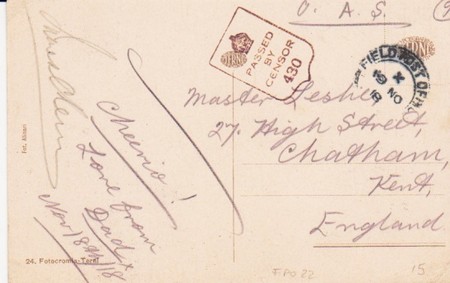 O. A. S.
PASSED
BY
CENSOR
430
FIELD POST OFFICE
X
19 NO
18
Master Leslie
27, High Street,
Chatham,
Kent,
England
Cheerio!
Love from
Dad x
Nov/18th/18
24. Fotocromia-Terni
F.P.O 22
15